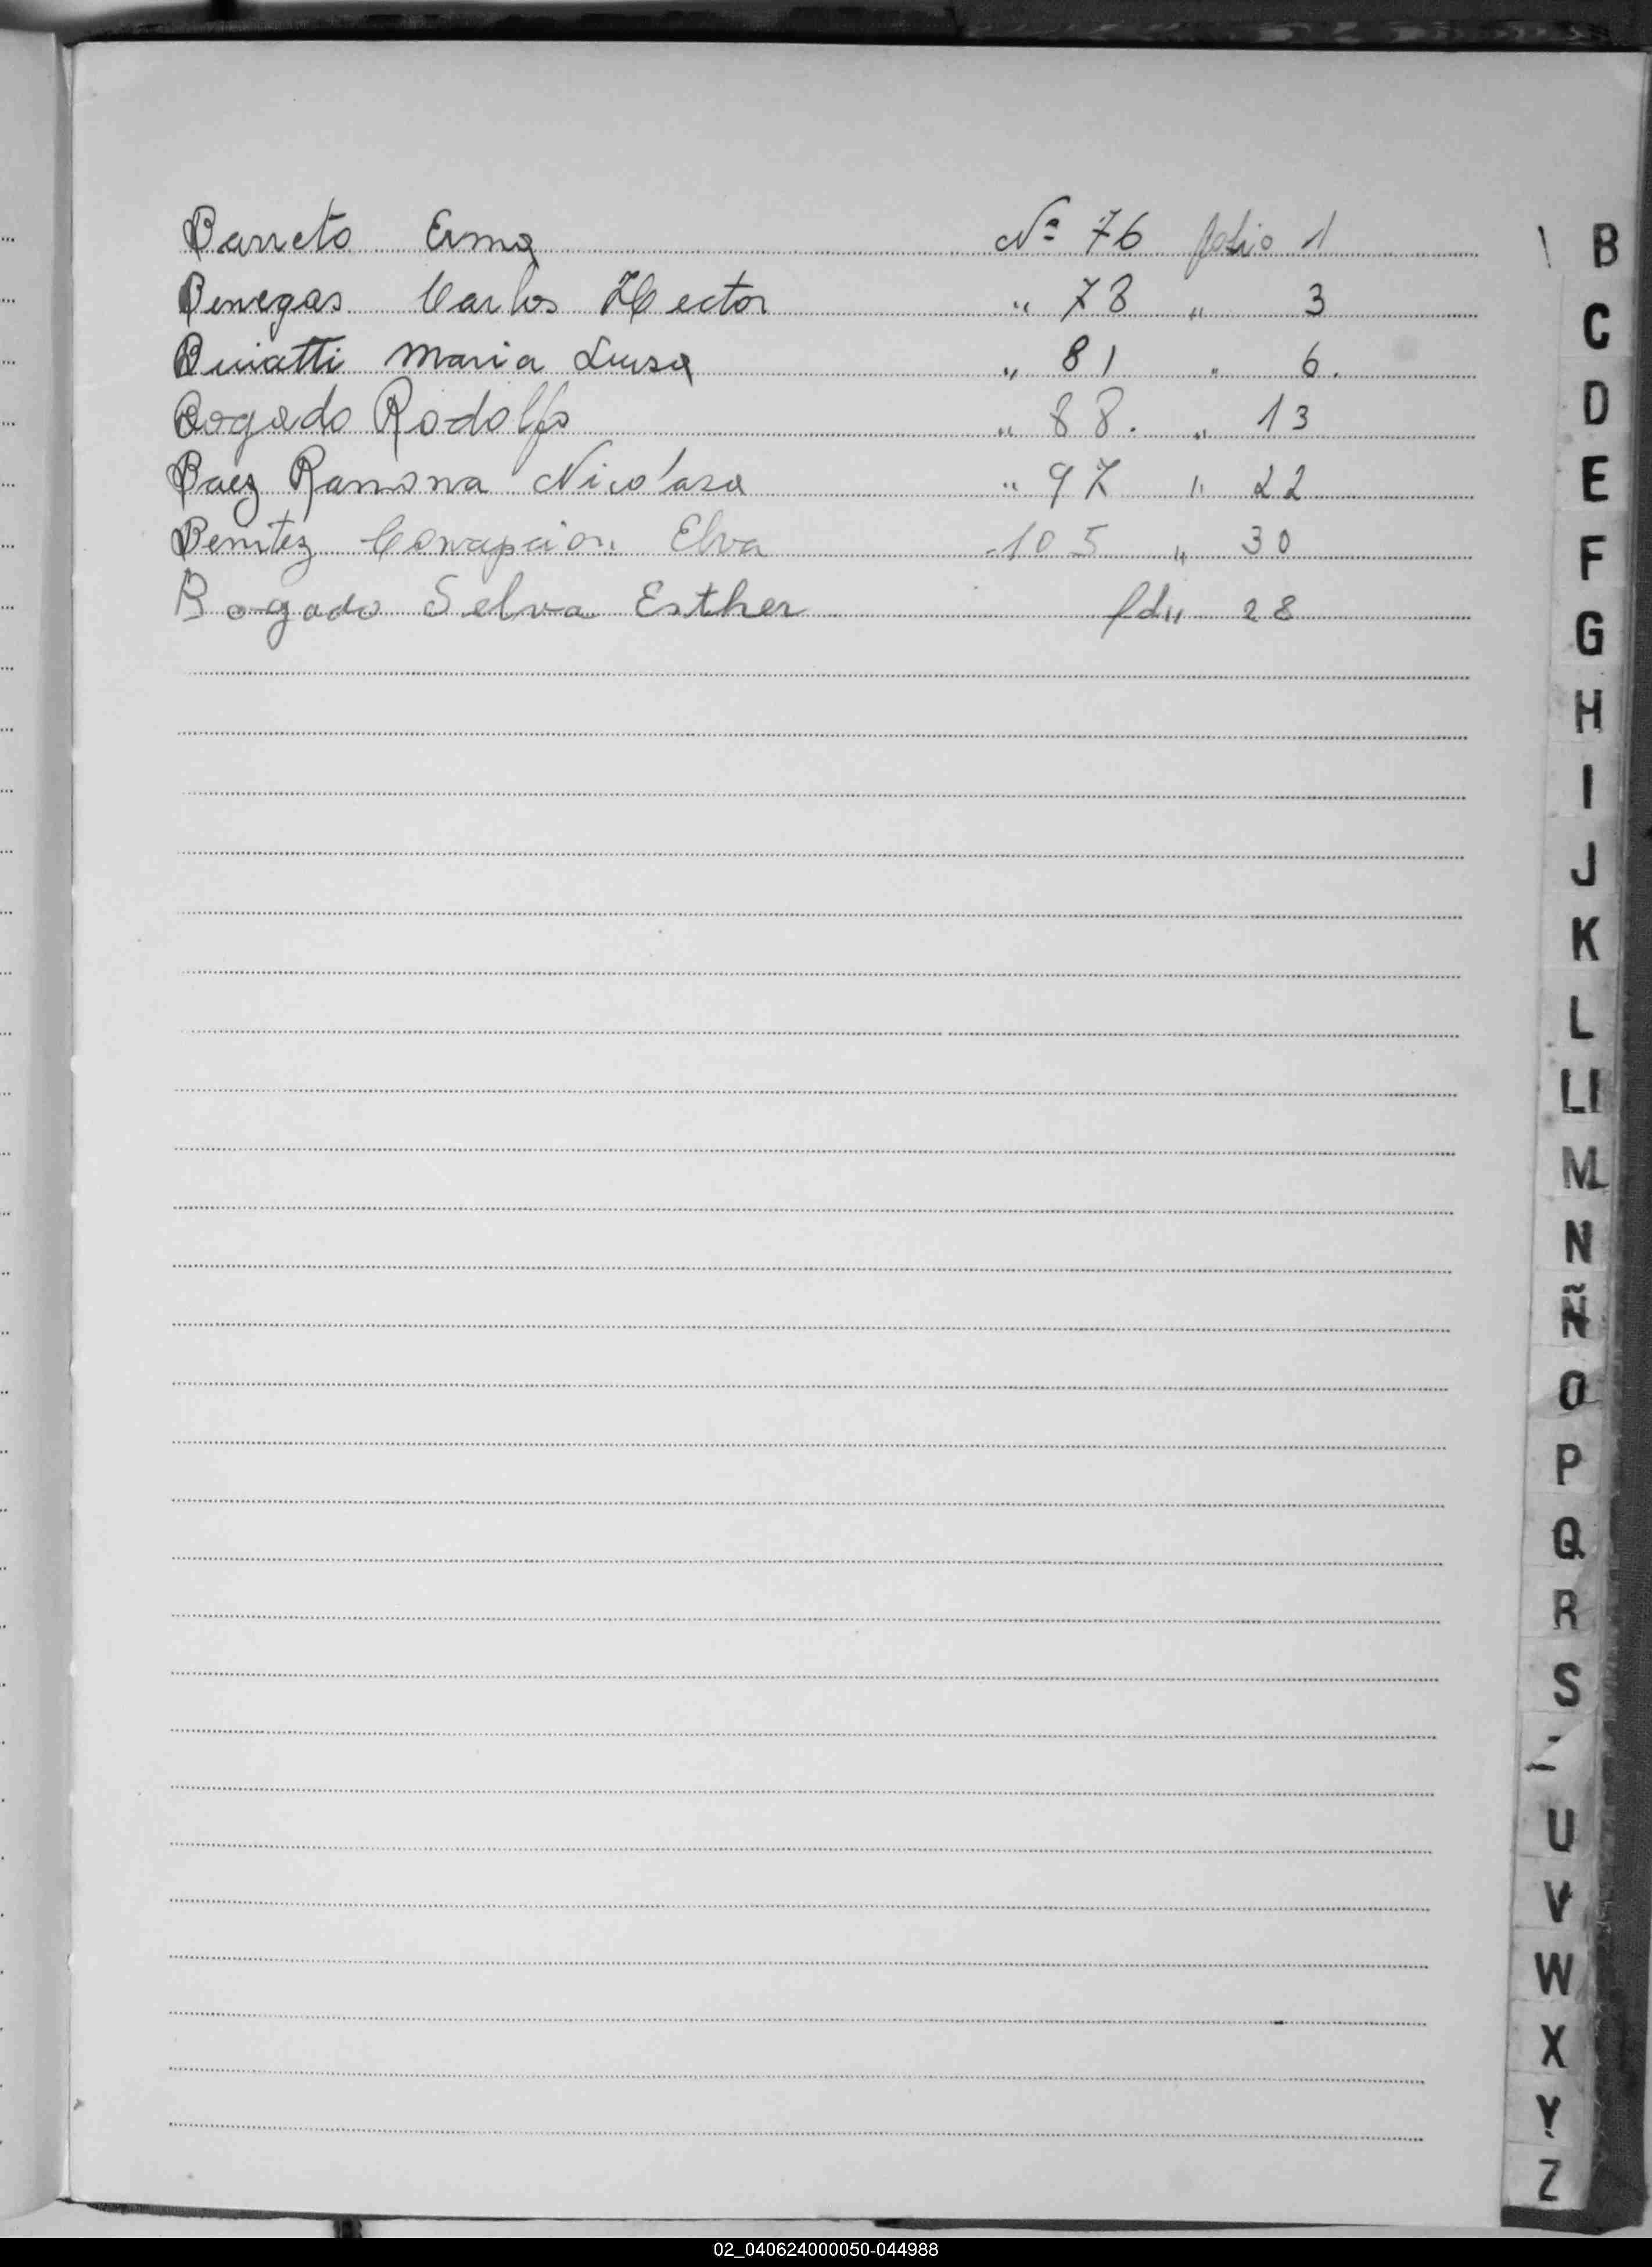 Barreto Erma Nº 76 folio 1
Benegas Carlos Hector " 78 " 3
Buiatti Maria Luisa " 81 " 6.
Bogado Rodolfo " 88. " 13
Baez Ramona Nicolasa " 97 " 22
Benitez Concepcion Elva 105 " 30
Bogado Selva Esther " 28
B
C
D
E
F
G
H
I
J
K
L
Ll
M
N
Ñ
O
P
Q
R
S
U
V
W
X
Y
Z
02_040624000050-044988